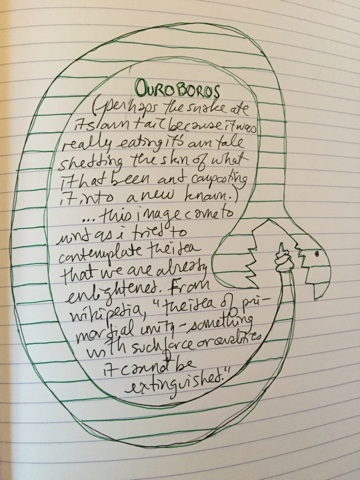 OUROBOROS
(perhaps the snake ate
its own tail because it was
really eating it's own tale
shedding the skin of what
it had been and composting
it into a new known.)
...this image come to
mind as i tried to
contemplate the idea
that we are already
enlightened. From
wikipedia, "the idea of pri-
mordial unity-something
with such force or qualities
it cannot be
extinguished."